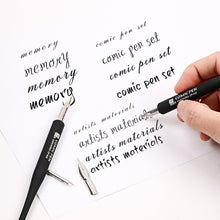 memory
memory
memory
memory
comic pen set
comic pen set
comic pen set
comic pen set
artists materials
artists materials
artists materials
artists materials
COMIC PEN